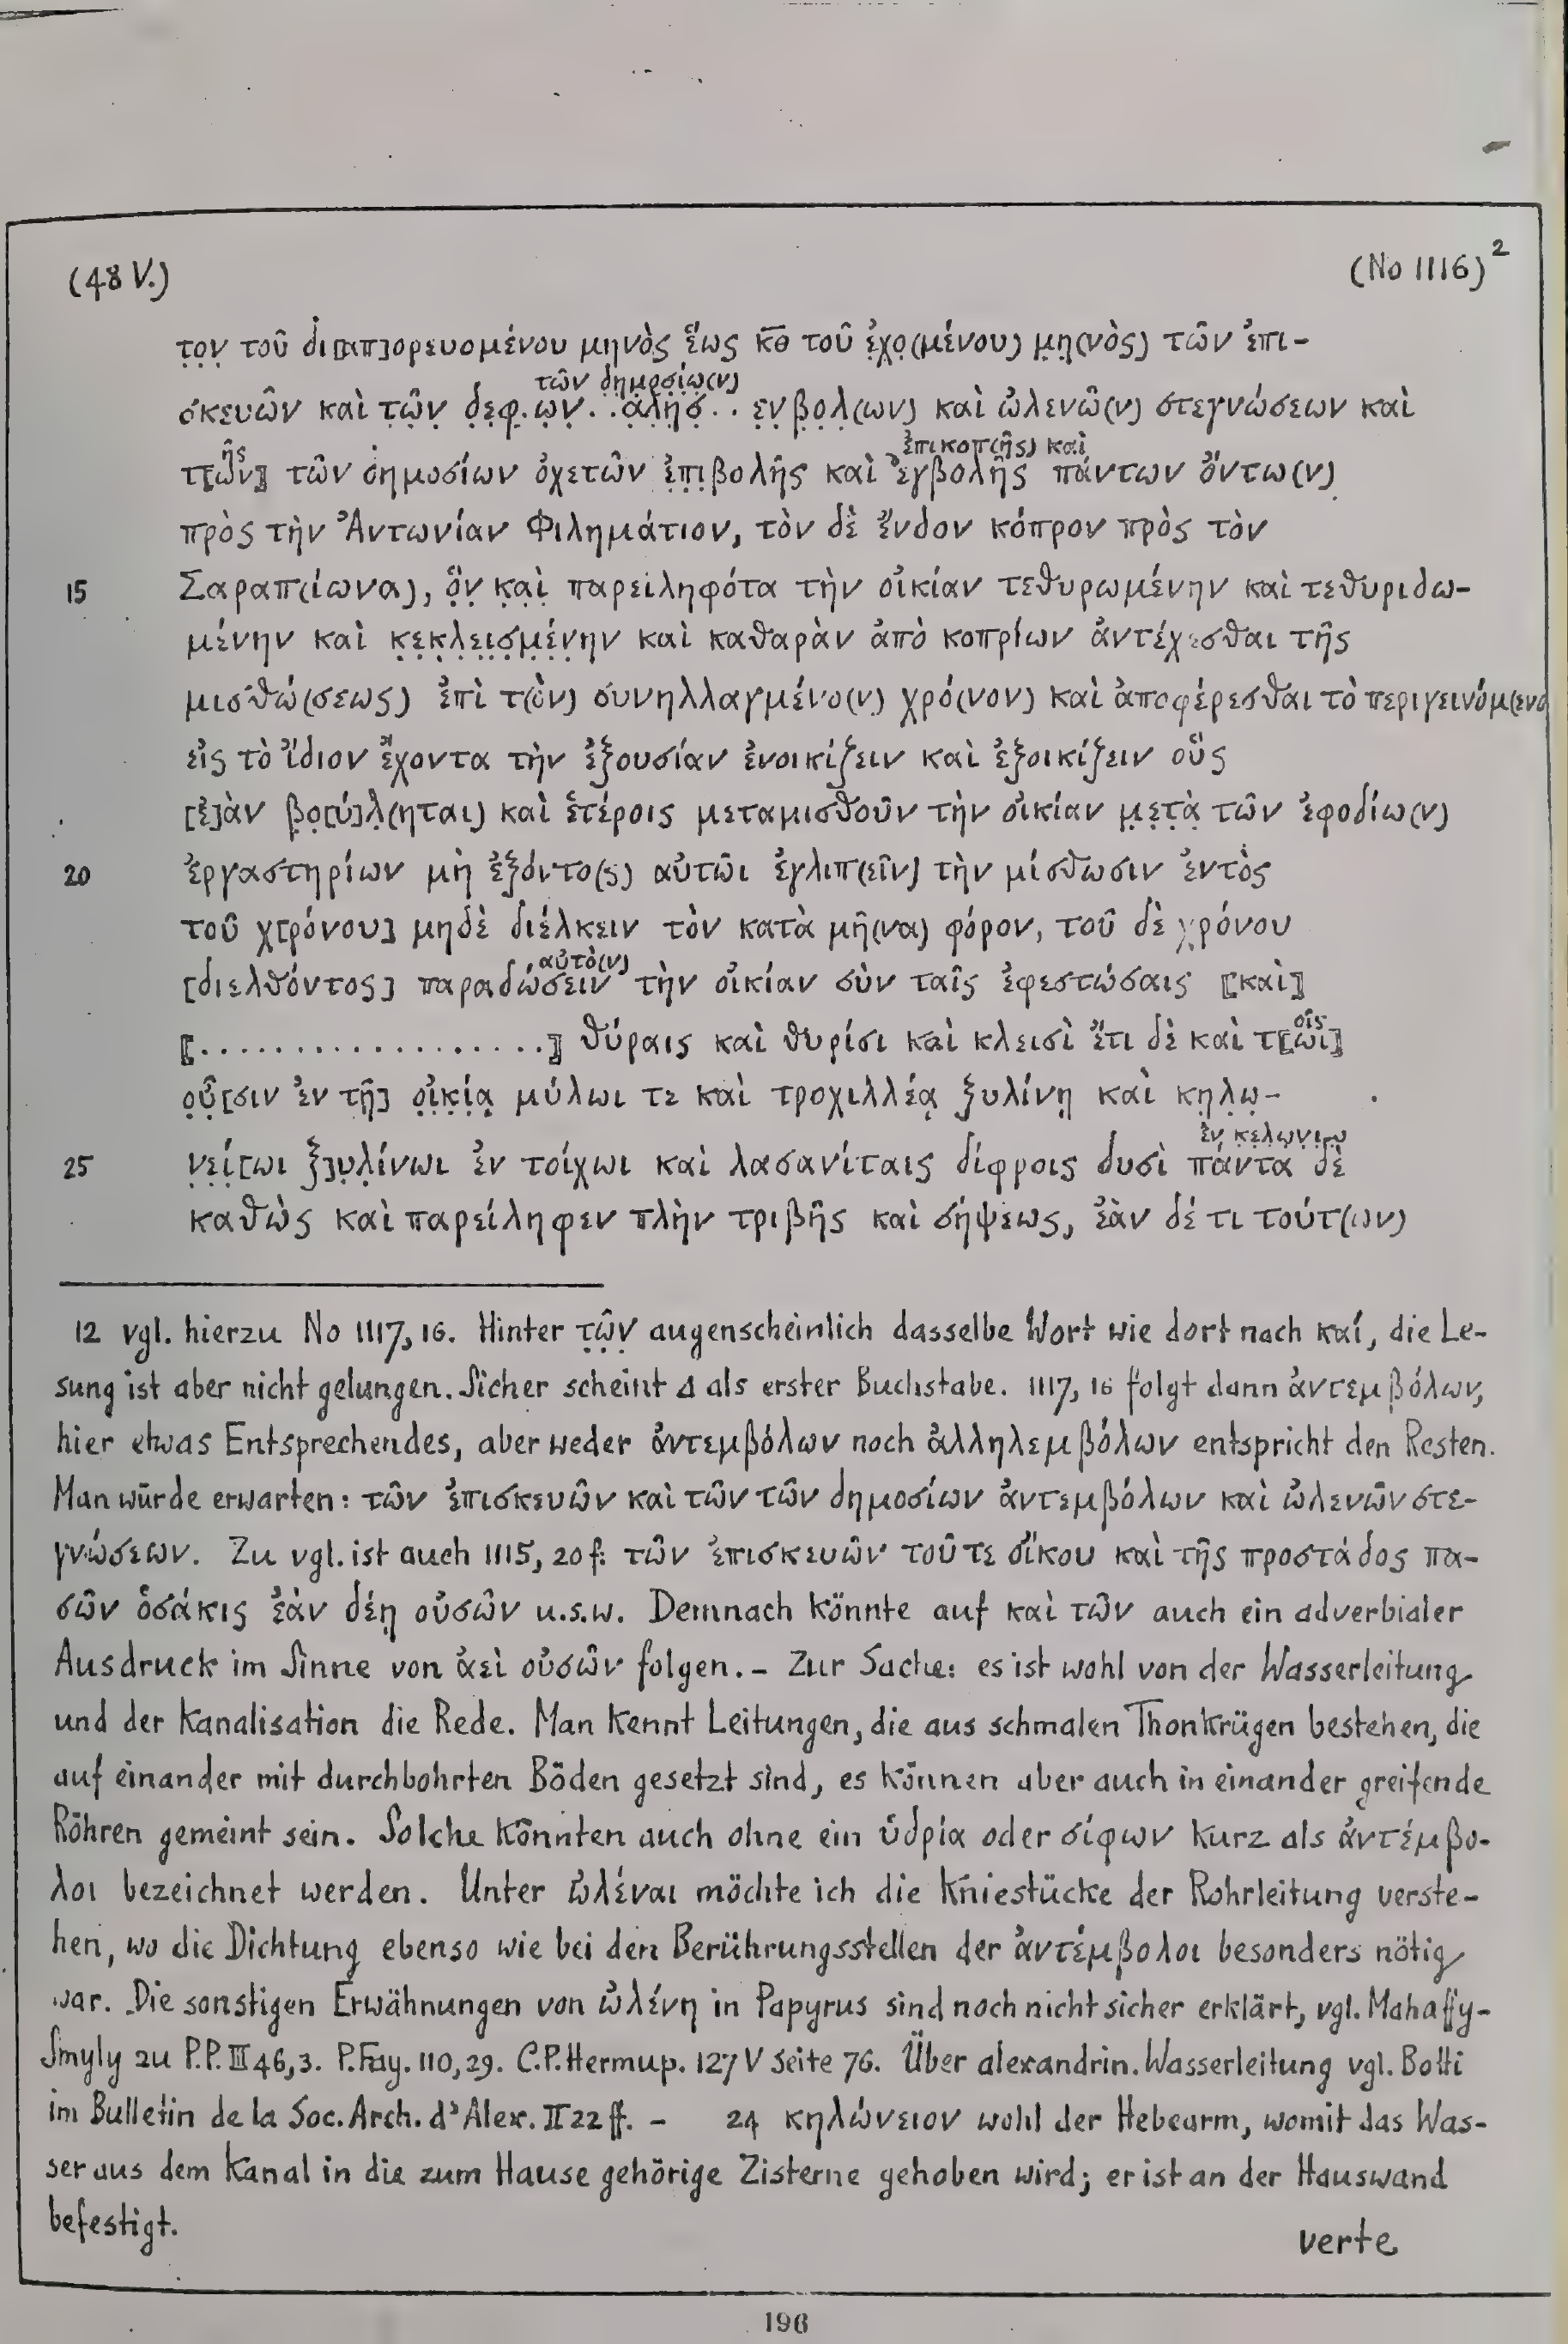 (48 V.) (No 1116)²
τ̣ο̣ν̣ τοῦ δι⟦απ⟧ορευομένου μηνὸς ἕως κ̅θ̅ τοῦ ἐ̣χο̣(μένου) μ̣η̣(νὸς) τῶν ἐπι-
τῶν δη̣μ̣ο̣σ̣ί̣ω̣(ν)
σκευῶν καὶ τ̣ῶ̣ν̣ δ̣ε̣φ̣.ω̣ν̣..ἀ̣λ̣η̣σ̣.. ε̣ν̣β̣ο̣λ̣(ων) καὶ ὠλενῶ(ν) στεγνώσεων καὶ
ῆς ἐπικοπ(ῆς) καὶ
τ⟦ῶν⟧ τῶν δημοσίων ὀχετῶν ἐ̣π̣ι̣βολῆς καὶ ἐγβολῆς πάντων ὄντω(ν)
πρὸς τὴν Ἀντωνίαν Φιλημάτιον, τὸν δὲ ἔνδον κόπρον πρὸς τὸν
15 Σαραπ(ίωνα), ὃ̣ν̣ κ̣α̣ὶ̣ παρειληφότα τὴν οἰκίαν τεθυρωμένην καὶ τεθυριδω-
μένην καὶ κ̣ε̣κ̣λ̣ε̣ι̣σ̣μ̣έ̣ν̣ην καὶ καθαρὰν ἀπὸ κοπρίων ἀντέχεσθαι τῆς
μισθώ(σεως) ἐπὶ τ(ὸν) συνηλλαγμένο(ν) χρό(νον) καὶ ἀποφέρεσθαι τὸ περιγεινόμ(ενο
εἰς τὸ ἴδιον ἔχοντα τὴν ἐξουσίαν ἐνοικίζειν καὶ ἐξοικίζειν οὓς
[ἐ]ὰν β̣ο̣[ύ]λ̣(ηται) καὶ ἑτέροις μεταμισθοῦν τὴν οἰκίαν μ̣ε̣τ̣ὰ̣ τῶν ἐφοδίω(ν)
20 ἐργαστηρίων μὴ ἐξόντο(ς) αὐτῶι ἐγλιπ(εῖν) τὴν μίσθωσιν ἐντὸς
τοῦ χ[ρόνου] μηδὲ διέλκειν τὸν κατὰ μῆ(να) φόρον, τοῦ δὲ χρόνου
αὐτὸ(ν)
[διελθόντος] παραδώσειν τὴν οἰκίαν σὺν ταῖς ἐφεστώσαις ⟦καὶ⟧
⟦...................⟧ θύραις καὶ θυρίσι καὶ κλεισὶ ἔτι δὲ καὶ τ⟦ῶι⟧
οῖς
ο̣ὖ̣[σιν ἐν τῇ] ο̣ἰ̣κ̣ί̣ᾳ̣ μύλωι τε καὶ τροχιλλέᾳ ξυλίνῃ καὶ κ̣η̣λ̣ω̣-
ἐν̣ κ̣ε̣λ̣ω̣ν̣ι̣ῳ̣
25 ν̣ε̣ί̣[ωι ξ]υ̣λ̣ίνωι ἐν τοίχωι καὶ λασανίταις δίφροις δυσὶ πάντα δὲ
καθὼς καὶ παρείληφεν πλὴν τριβῆς καὶ σήψεως, ἐὰν δέ τι τούτ(ων)
12 vgl. hierzu No 1117, 16. Hinter τ̣ῶ̣ν̣ augenscheinlich dasselbe Wort wie dort nach καί, die Le-
sung ist aber nicht gelungen. Sicher scheint Δ als erster Buchstabe. 1117, 16 folgt dann ἀντεμβόλων,
hier etwas Entsprechendes, aber weder ἀντεμβόλων noch ἀλληλεμβόλων entspricht den Resten.
Man würde erwarten: τῶν ἐπισκευῶν καὶ τῶν τῶν δημοσίων ἀντεμβόλων καὶ ὠλενῶν στε-
γνώσεων. Zu vgl. ist auch 1115, 20 f: τῶν ἐπισκευῶν τοῦ τε οἴκου καὶ τῆς προστάδος πα-
σῶν ὁσάκις ἐὰν δέῃ οὐσῶν u.s.w. Demnach könnte auf καὶ τῶν auch ein adverbialer
Ausdruck im Sinne von ἀεὶ οὐσῶν folgen. – Zur Sache: es ist wohl von der Wasserleitung
und der Kanalisation die Rede. Man kennt Leitungen, die aus schmalen Thonkrügen bestehen, die
auf einander mit durchbohrten Böden gesetzt sind, es können aber auch in einander greifende
Röhren gemeint sein. Solche könnten auch ohne ein ὑδρία oder σίφων kurz als ἀντέμβο-
λοι bezeichnet werden. Unter ὠλέναι möchte ich die Kniestücke der Rohrleitung verste-
hen, wo die Dichtung ebenso wie bei den Berührungsstellen der ἀντέμβολοι besonders nötig
war. Die sonstigen Erwähnungen von ὠλένη in Papyrus sind noch nicht sicher erklärt, vgl. Mahaffy-
Smyly zu P.P. III 46,3. P.Fay. 110,29. C.P.Hermup. 127 V Seite 76. Über alexandrin. Wasserleitung vgl. Botti
im Bulletin de la Soc. Arch. d'Alex. II 22 ff. – 24 κηλώνειον wohl der Hebearm, womit das Was-
ser aus dem Kanal in die zum Hause gehörige Zisterne gehoben wird; er ist an der Hauswand
befestigt.
verte
196